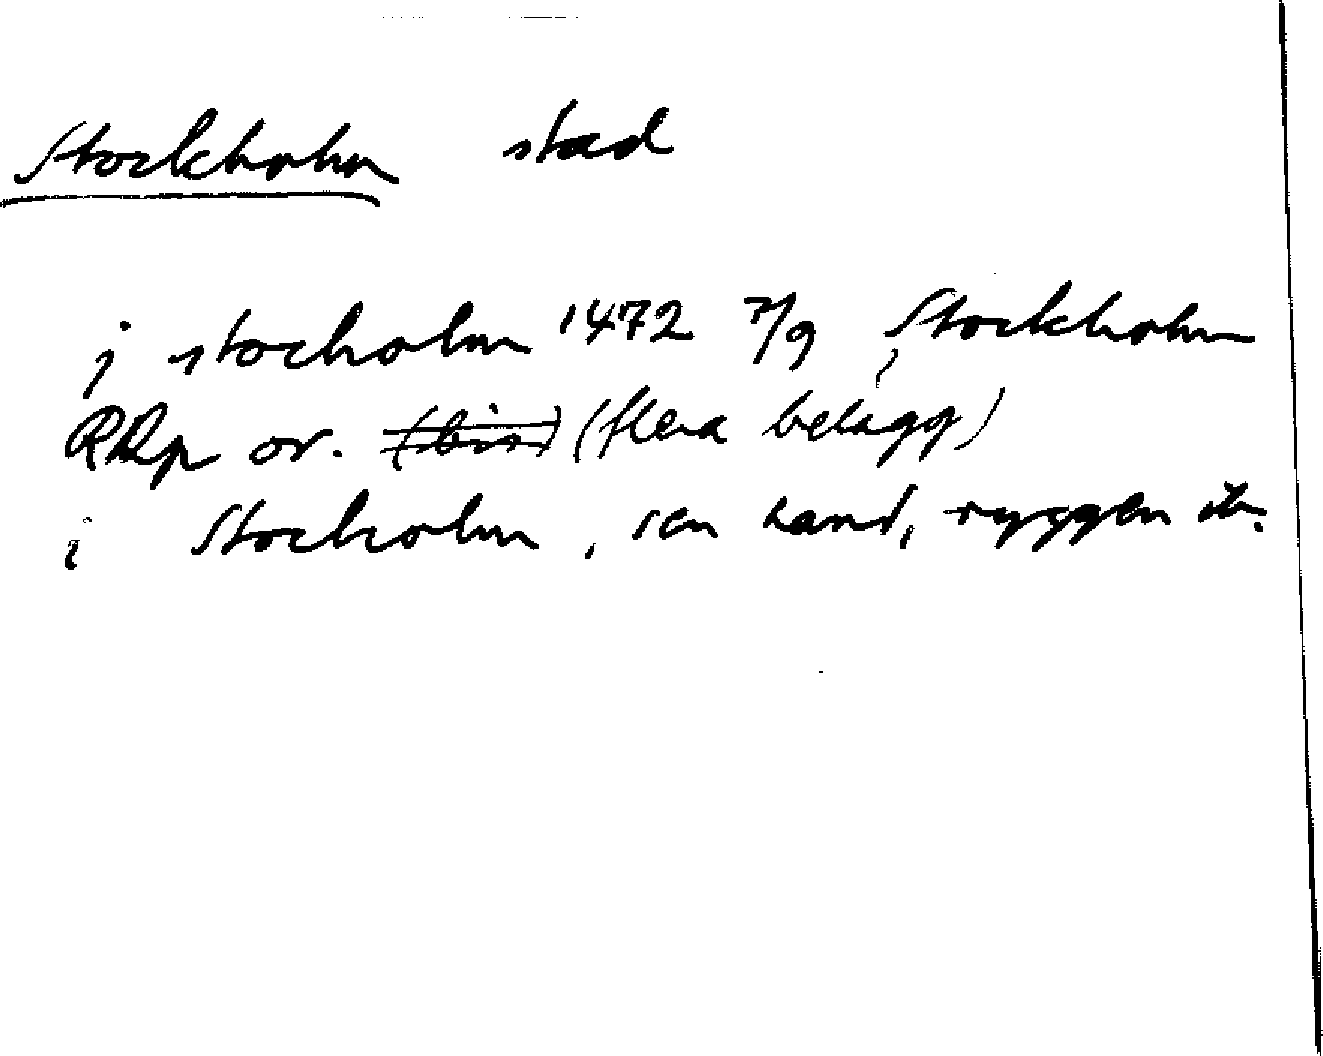 Stockholm stad
j stocholm 1472 7/9, Stockholm
RAp or. (bis) (flera belägg)
i Stocholm, sen hand, ryggen ib.